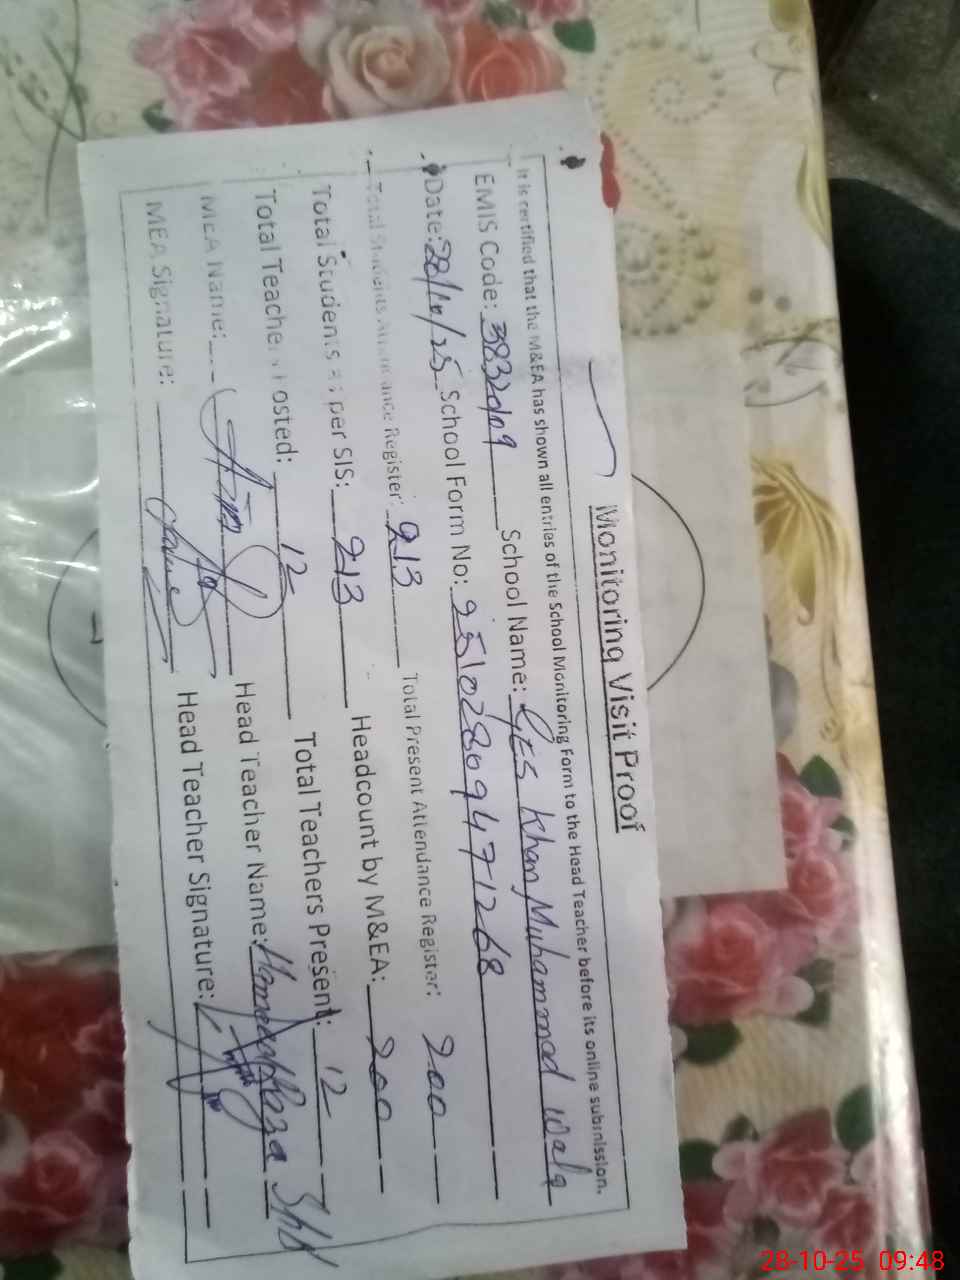 Monitoring Visit Proof
It is certified that the M&EA has shown all entries of the School Monitoring Form to the Head Teacher before its online submission.
EMIS Code: School Name: GES Khan Muhammad Wala
Date: 28/10/25 School Form No: 25102809471268
Total Students Attendance Register: 213 Total Present Attendance Register: 200
Total Students as per SIS: 213 Headcount by M&EA: 200
Total Teachers Posted: 12 Total Teachers Present: 12
MEA Name: Head Teacher Name:
MEA Signature: Head Teacher Signature:
28-10-25 09:48